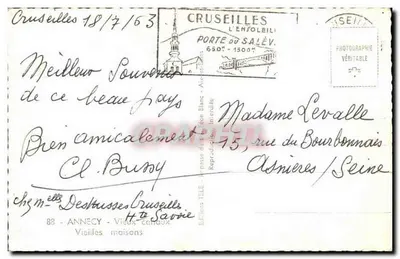 Cruseilles 18/7/63
CRUSEILLES
L'ENSOLEILLÉE
PORTE DU SALÈVE
PHOTOGRAPHIE
VÉRITABLE
Meilleur Souvenir
de ce beau pays
Bien amicalement
Cl. Bussy
Madame Levalle
15, rue du Bourbonnais
Asnières/Seine
chez melles Destrusses Cruseilles
Hte Savoie
88 - ANNECY - Vieux canaux
Vieilles maisons